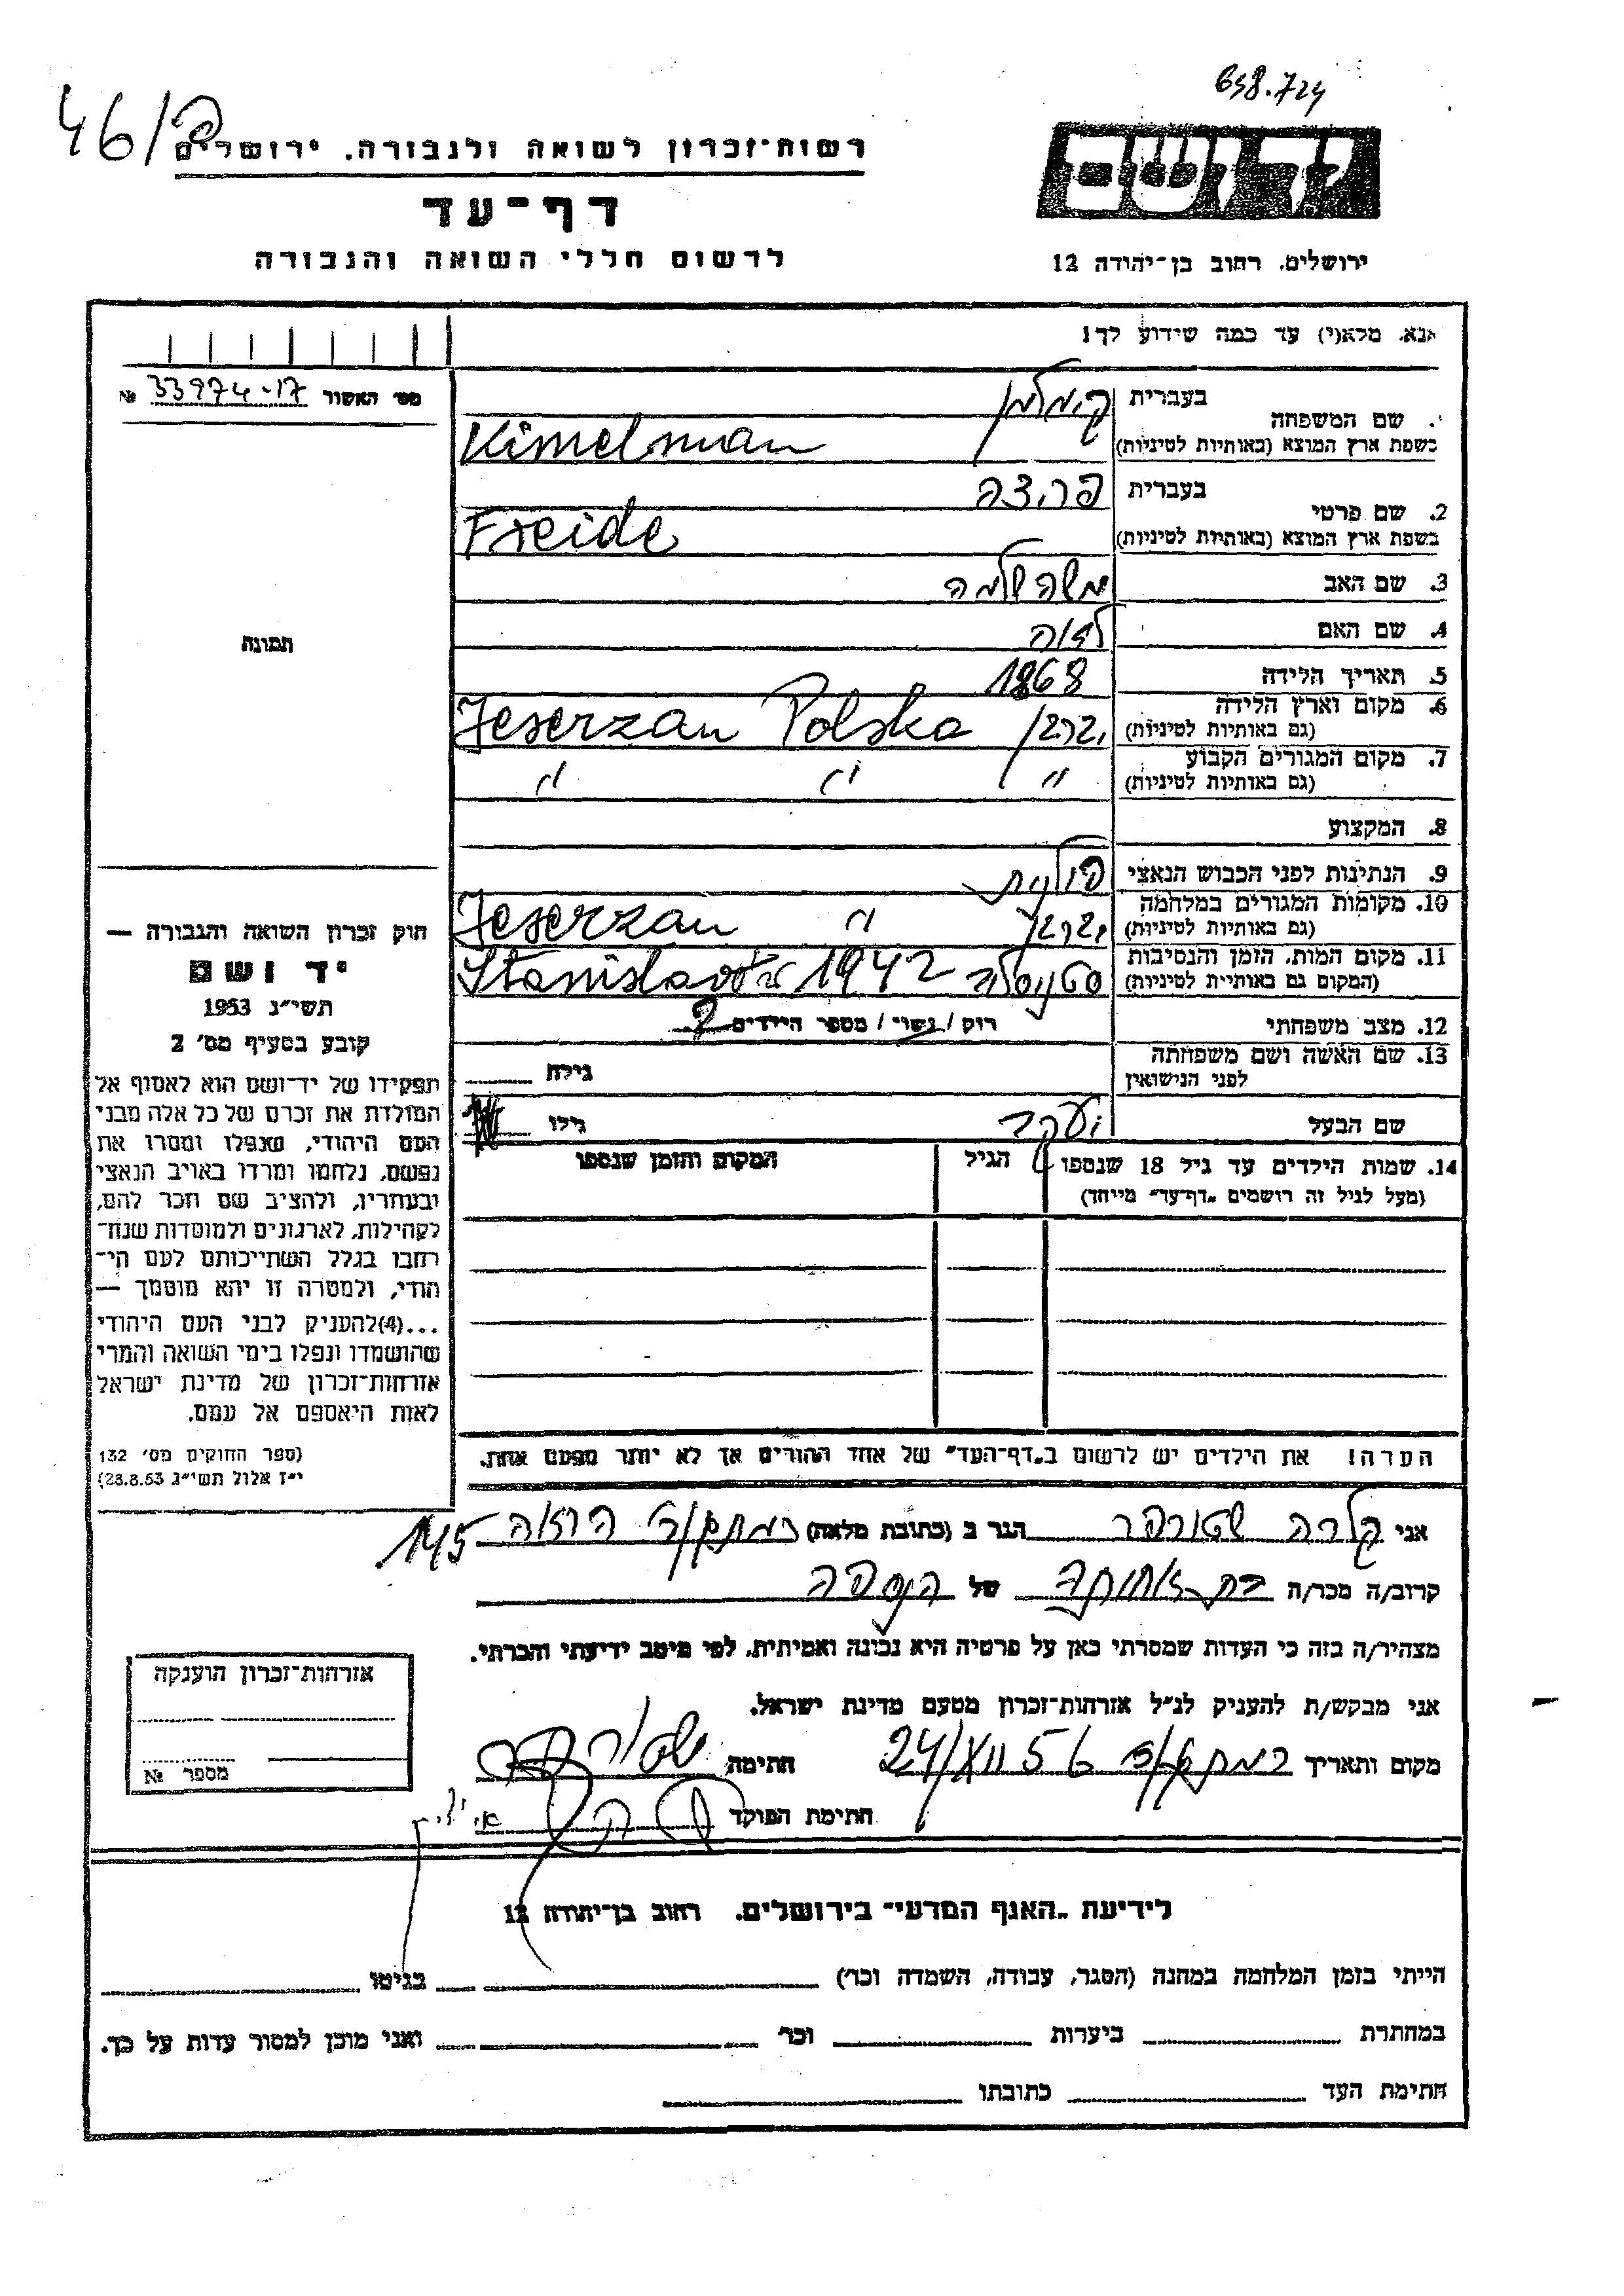 648.724
46/פ
רשות-זכרון לשואה ולגבורה. ירושלים
יד ושם
דף-עד
לרשום חללי השואה והגבורה
ירושלים, רחוב בן-יהודה 12
אנא, מלא(י) עד כמה שידוע לך!
מס׳ האשור 33974-17 №
תמונה
שם המשפחה בעברית קימלמן
בשפת ארץ המוצא (באותיות לטיניות) Kimelman
2. שם פרטי בעברית פרידה
בשפת ארץ המוצא (באותיות לטיניות) Freide
3. שם האב משה שלמה
4. שם האם לאה
5. תאריך הלידה 1868
6. מקום וארץ הלידה Jeserzan Polska
(גם באותיות לטיניות)
7. מקום המגורים הקבוע " " "
(גם באותיות לטיניות)
8. המקצוע
9. הנתינות לפני הכבוש הנאצי פולנית
10. מקומות המגורים במלחמה Jeserzan "
(גם באותיות לטיניות)
11. מקום המות, הזמן והנסיבות 1942
(המקום גם באותיית לטיניות)
12. מצב משפחתי רוק / נשוי / מספר הילדים 2
13. שם האשה ושם משפחתה גילה
לפני הנישואין
שם הבעל יעקב גילו
14. שמות הילדים עד גיל 18 שנספו הגיל המקום והזמן שנספו
(מעל לגיל זה רושמים „דף-עד" מייחד)
הערה! את הילדים יש לרשום ב„דף-העד" של אחד ההורים אך לא יותר מפעם אחת.
חוק זכרון השואה והגבורה —
יד ושם
תשי״ג 1953
קובע בסעיף מס׳ 2
תפקידו של יד-ושם הוא לאסוף אל
המולדת את זכרם של כל אלה מבני
העם היהודי, שנפלו ומסרו את
נפשם, נלחמו ומרדו באויב הנאצי
ובעוזריו, ולהציב שם וזכר להם,
לקהילות, לארגונים ולמוסדות שנח-
רחבו בגלל השתייכותם לעם הי-
הודי, ולמטרה זו יהא מוסמך —
...(4)להעניק לבני העם היהודי
שהושמדו ונפלו בימי השואה והמרי
אזרחות-זכרון של מדינת ישראל
לאות היאספם אל עמם.
(ספר החוקים מס׳ 132
י״ז אלול תשי״ג 28.8.53)
אני קלרה הגר ב (כתובת מלאה) רמת יצחק הרואה 145
קרוב/ה מכר/ה בת אחותה של הנספה
מצהיר/ה בזה כי העדות שמסרתי כאן על פרטיה היא נכונה ואמיתית, לפי מיטב ידיעתי והכרתי.
אני מבקש/ת להעניק לנ״ל אזרחות-זכרון מטעם מדינת ישראל.
מקום ותאריך רמת יצחק 24/XII 56 חתימה
חתימת הפוקד
אזרחות-זכרון הוענקה
מספר №
לידיעת „האגף המדעי" בירושלים. רחוב בן-יהודה 12
הייתי בזמן המלחמה במחנה (הסגר, עבודה, השמדה וכר׳) בגיטו
במחתרת ביערות וכר׳ ואני מוכן למסור עדות על כך.
חתימת העד כתובתו